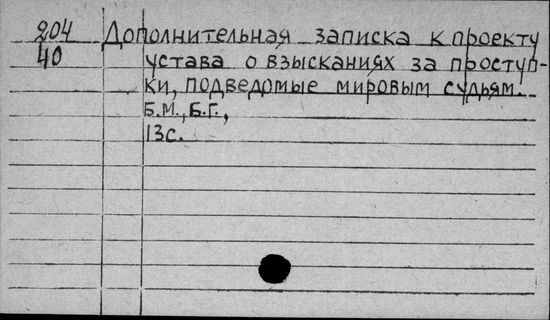 204 Дополнительная записка к проекту
40 устава о взысканиях за проступ-
ки, подведомые мировым судьям.
Б.М., Б.Г.,
13с.